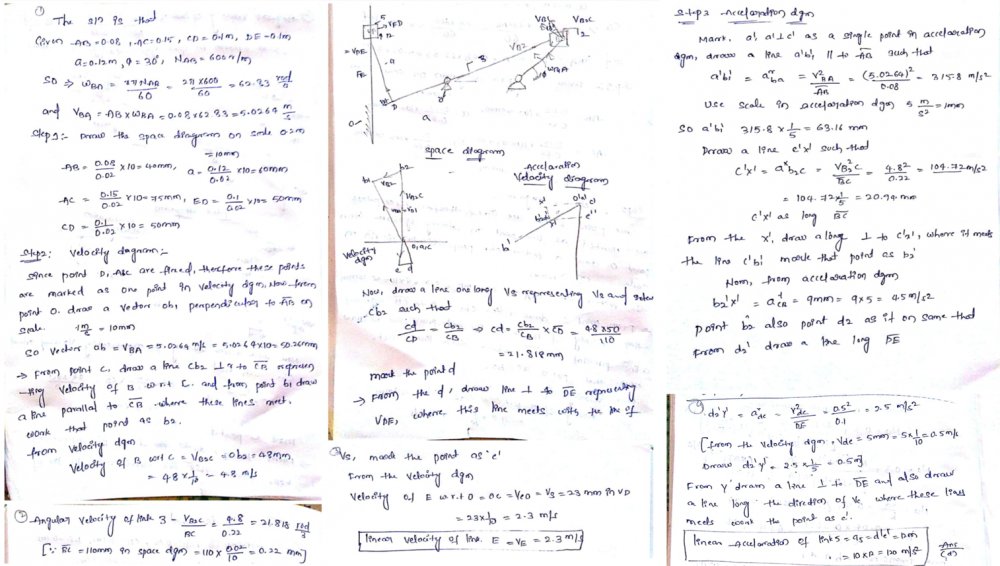 ①
The s1? is that
Given AB = 0.08, AC = 0.15, CD = 0.1m, DE = 0.1m
a = 0.12m, θ = 30°, NAB = 600 r/m
SO ⇒ ωBA = 2πNAB/60 = 2π×600/60 = 62.83 rad/s
and VBA = AB×ωBA = 0.08×62.83 = 5.0264 m/s
Step1:- Draw the space diagram on scale 0.2m = 10mm
AB = 0.08/0.02 ×10 = 40mm, a = 0.12/0.02 ×10 = 60mm
AC = 0.15/0.02 ×10 = 75mm, ED = 0.1/0.02 ×10 = 50mm
CD = 0.1/0.02 ×10 = 50mm
Step2: Velocity diagram:-
since point D, A&C are fixed, therefore these points
are marked as one point in velocity dgm, Now from
point O. draw a vector ob, perpendicular to AB on
scale 1 m/s = 10mm
SO vector ob = VBA = 5.0264 m/s = 5.0264×10 = 50.26mm
→ From point C, draw a line Cb2 ⊥r to CB represen
-ting velocity of B w.r.t C. and from point b1 draw
a line parallel to CB where these lines meet.
mark that point as b2.
from velocity dgm
Velocity of B w.r.t C = VB2C = Ob2 = 48mm
= 48 × 1/10 = 4.8 m/s
② Angular velocity of link 3 = VB2C/BC = 4.8/0.22 = 21.818 rad/s
[∵ BC = 110mm in space dgm = 110 × 0.02/10 = 0.22 mm]
space diagram
Acceleration
Velocity diagram
Velocity dgm
Now, draw a line along VB representing VB and
Cb2 such that
cd/CD = Cb2/CB ⇒ cd = Cb2/CB × CD = 4.8×50/110
= 21.818mm
mark the point d
→ From the d, draw line ⊥ to DE representing
VDE, where this line meets with the line of
③ V5, mark the point as 'e'
From the velocity dgm
Velocity of E w.r.t O = OC = VEO = V5 = 23 mm in VD
= 23 × 1/10 = 2.3 m/s
linear velocity of line E = VE = 2.3 m/s
Step3 Acceleration dgm
Mark, o', a' & c' as a single point in acceleration
dgm, draw a line a'b', || to AB such that
a'b' = arba = V²BA/AB = (5.0264)²/0.08 = 315.8 m/s²
Use scale in acceleration dgm 5 m/s² = 1mm
SO a'b' 315.8 × 1/5 = 63.16 mm
Draw a line c'x' such that
c'x' = arb2c = VB2²C/BC = 4.8²/0.22 = 104.72 m/s²
= 104.72 × 1/5 = 20.94 mm
c'x' as long BC
From the x', draw along ⊥ to c'x', where it meets
the line c'b' mark that point as b2'
Now, from acceleration dgm
b2'x' = atCB = 9mm = 9×5 = 45 m/s²
point b2' also point d2 as it on same that
From d2' draw a line long DE
④ d2'y' = ardc = V²dc/DE = 0.5²/0.1 = 2.5 m/s²
[from the velocity dgm, Vdc = 5mm = 5×1/10 = 0.5 m/s
Draw d2'y' = 2.5 × 1/5 = 0.5m]
From y' draw a line ⊥ to DE and also draw
a line long the direction of Ve where these lines
meets mark the point as e'.
linear acceleration of link 5 = a5 =
Ans